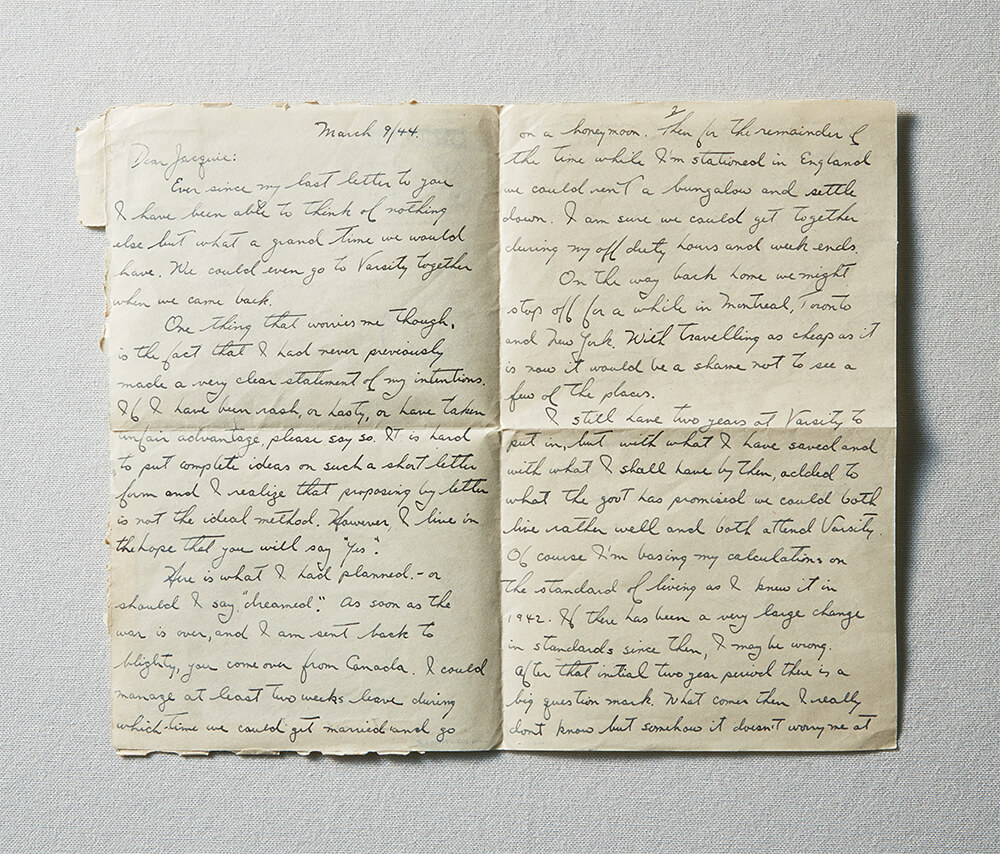 March 9/44.
Dear Jacquie:
Ever since my last letter to you
I have been able to think of nothing
else but what a grand time we would
have. We could even go to Varsity together
when we came back.
One thing that worries me though,
is the fact that I had never previously
made a very clear statement of my intentions.
If I have been rash, or hasty, or have taken
unfair advantage, please say so. It is hard
to put complete ideas on such a short letter
form and I realize that proposing by letter
is not the ideal method. However, I live in
the hope that you will say "Yes".
Here is what I had planned. - or
should I say "dreamed". As soon as the
war is over, and I am sent back to
blighty, you come over from Canada. I could
manage at least two weeks leave during
which time we could get married and go
2
on a honeymoon. Then for the remainder of
the time while I'm stationed in England
we could rent a bungalow and settle
down. I am sure we could get together
during my off duty hours and week ends.
On the way back home we might
stop off for a while in Montreal, Toronto
and New York. With travelling as cheap as it
is now it would be a shame not to see a
few of the places.
I still have two years at Varsity to
put in, but with what I have saved and
with what I shall have by then, added to
what the gov't has promised we could both
live rather well and both attend Varsity.
Of course I'm basing my calculations on
the standard of living as I knew it in
1942. If there has been a very large change
in standards since then, I may be wrong.
After that initial two year period there is a
big question mark. What comes then I really
dont know but somehow it doesn't worry me at